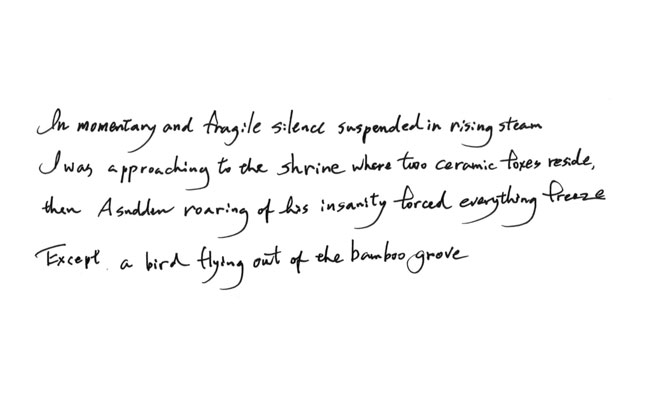 In momentary and fragile silence suspended in rising steam
I was approaching to the shrine where two ceramic foxes reside,
then A sudden roaring of his insanity forced everything freeze
Except a bird flying out of the bamboo grove